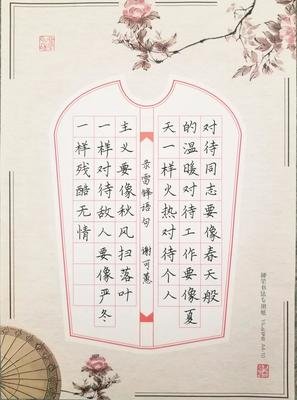 对待同志要像春天般
的温暖对待工作要像夏
天一样火热对待个人
录雷锋语句 谢可
主义要像秋风扫落叶
一样对待敌人要像严冬
一样残酷无情
书法专用纸